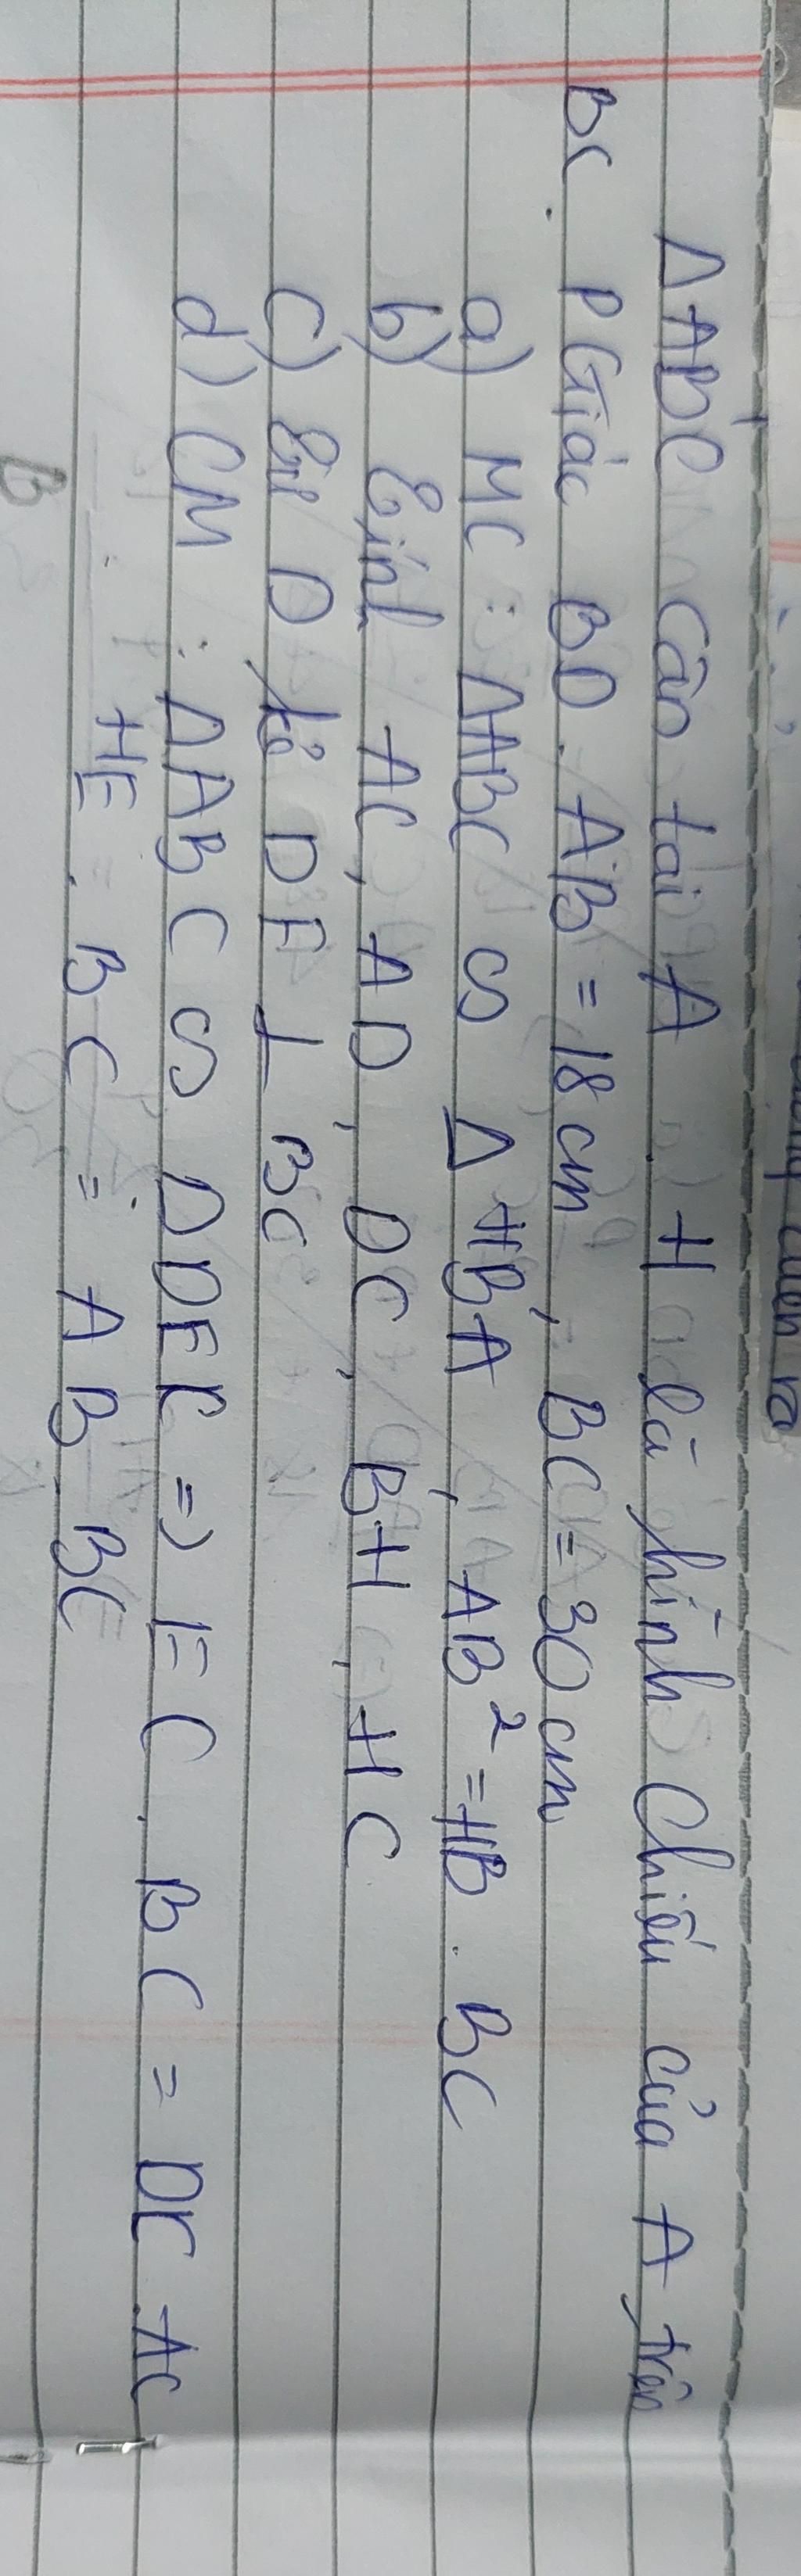 ΔABC cân tại A. H là hình chiếu của A trên
BC. PGiác BD. AB = 18cm, BC = 30cm
a) MC: ΔABC ∽ ΔHBA, AB² = HB. BC
b) Tính AC, AD, DC, BH, HC
c) Từ D kẻ DE ⊥ BC
d) CM: ΔABC ∽ ΔDEC => EC. BC = DC. AC
HE. BC = AB. BC
B